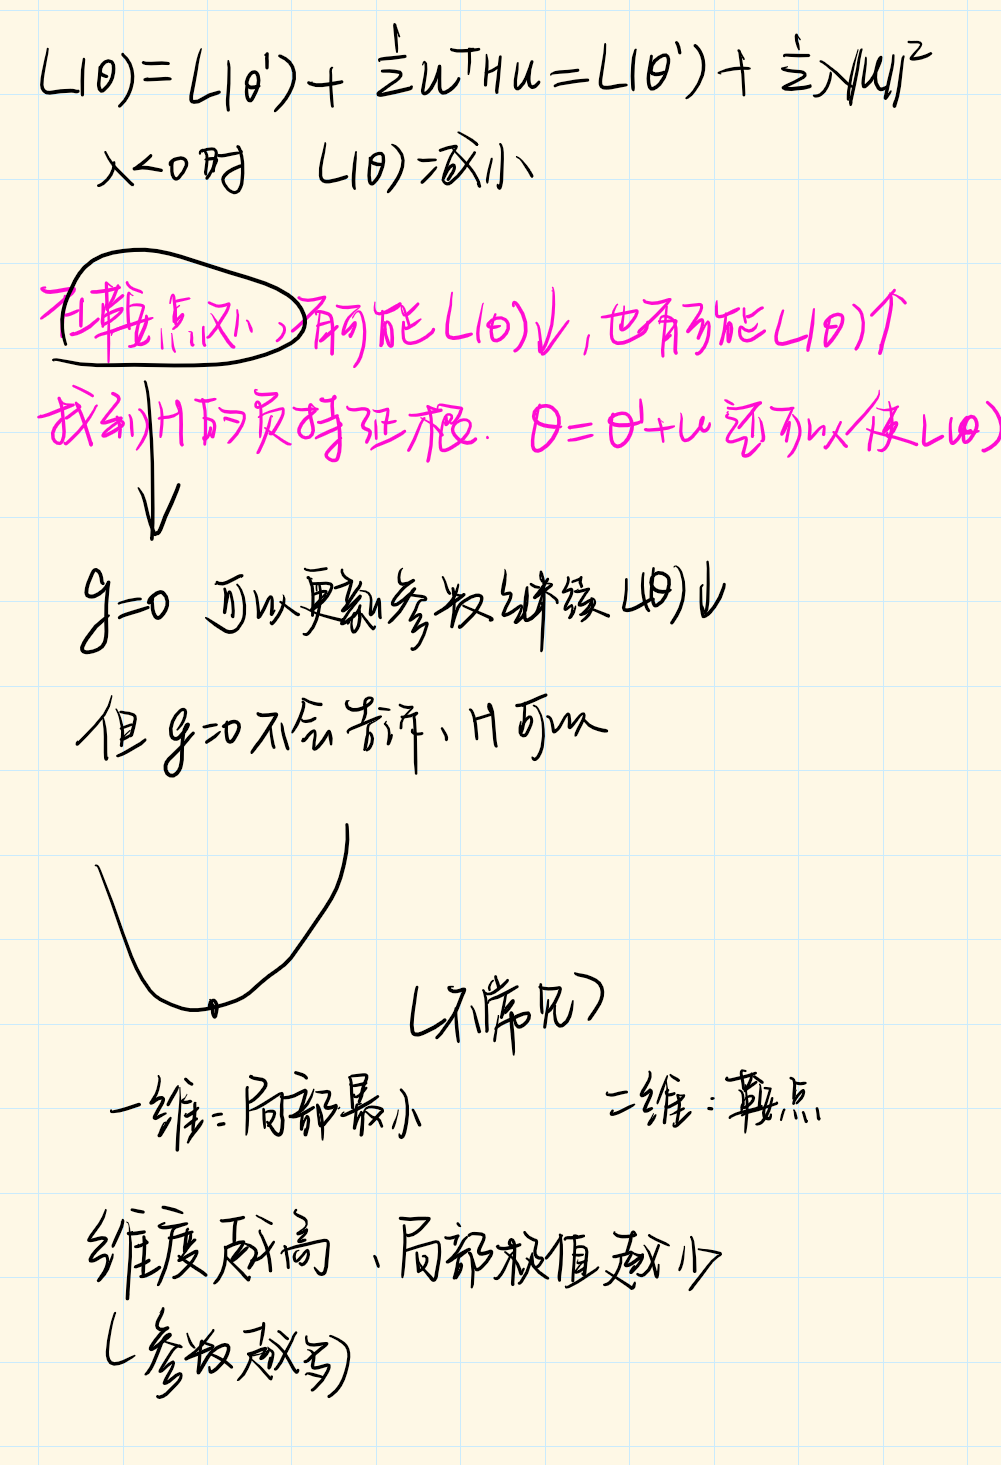 L(θ)=L(θ')+ 1/2 uᵀHu=L(θ')+ 1/2 λ||u||²
λ<0时 L(θ)=减小
在鞍点处,有可能L(θ)↓,也有可能L(θ)↑
找到H的负特征 θ=θ'+u 还可以使L(θ)
g=0 可以更新参数继续L(θ)↓
但g=0不会告诉、H可以
(不常见)
一维:局部最小 二维:鞍点
维度越高、局部极值越少
(参数越多)